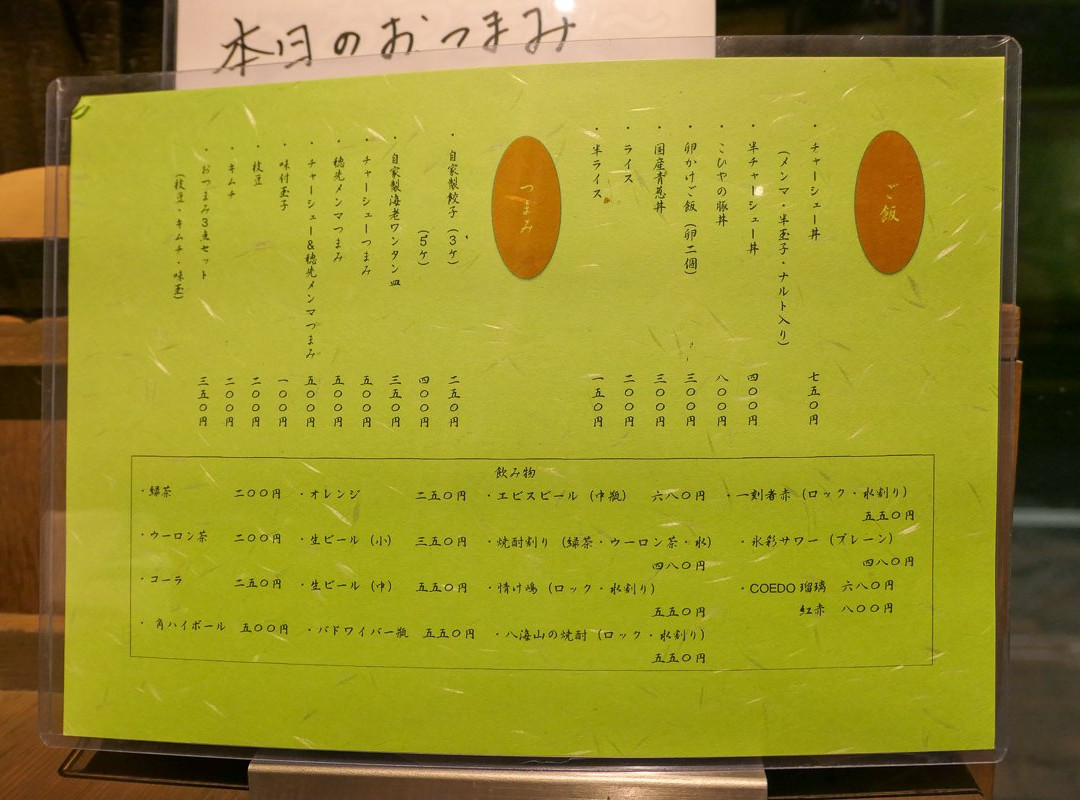 本日のおつまみ
ご飯
・チャーシュー丼 七五〇円
(メンマ・半玉子・ナルト入り)
・半チャーシュー丼 四〇〇円
・こひやの豚丼 八〇〇円
・卵かけご飯(卵二個) 三〇〇円
・国産青葱丼 三〇〇円
・ライス 二〇〇円
・半ライス 一五〇円
つまみ
・自家製餃子(3ヶ) 二五〇円
(5ヶ) 四〇〇円
・自家製海老ワンタン皿 三五〇円
・チャーシューつまみ 五〇〇円
・穂先メンマつまみ 五〇〇円
・チャーシュー&穂先メンマつまみ 五〇〇円
・味付玉子 一〇〇円
・枝豆 二〇〇円
・キムチ 二〇〇円
・おつまみ3点セット 三五〇円
(枝豆・キムチ・味玉)
飲み物
・緑茶 二〇〇円 ・オレンジ 二五〇円 ・エビスビール(中瓶) 六八〇円 ・一刻者赤(ロック・水割り)
五五〇円
・ウーロン茶 二〇〇円 ・生ビール(小) 三五〇円 ・焼酎割り(緑茶・ウーロン茶・水) ・氷彩サワー(プレーン)
四八〇円 四八〇円
・コーラ 二五〇円 ・生ビール(中) 五五〇円 ・情け嶋(ロック・水割り) ・COEDO 瑠璃 六八〇円
五五〇円 紅赤 八〇〇円
・角ハイボール 五〇〇円 ・バドワイバー瓶 五五〇円 ・八海山の焼酎(ロック・水割り)
五五〇円